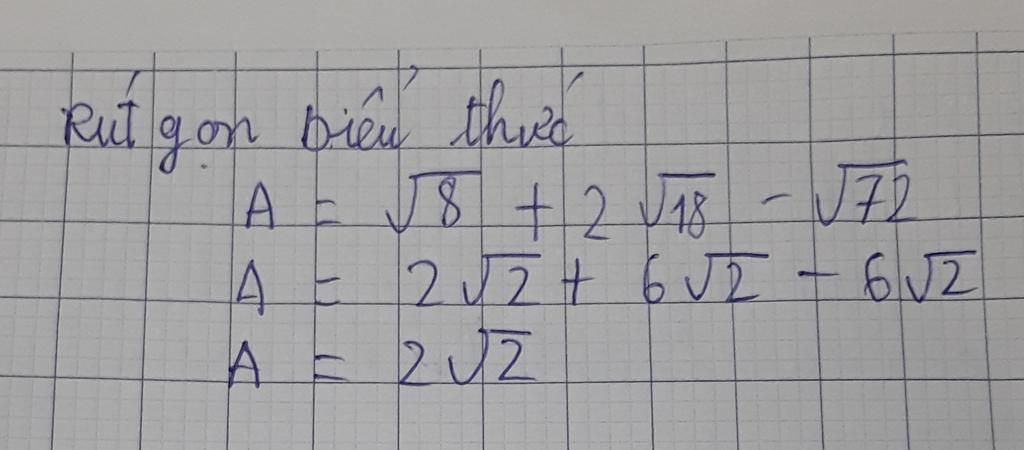 Rút gọn biểu thức
A = √8 + 2√18 - √72
A = 2√2 + 6√2 - 6√2
A = 2√2